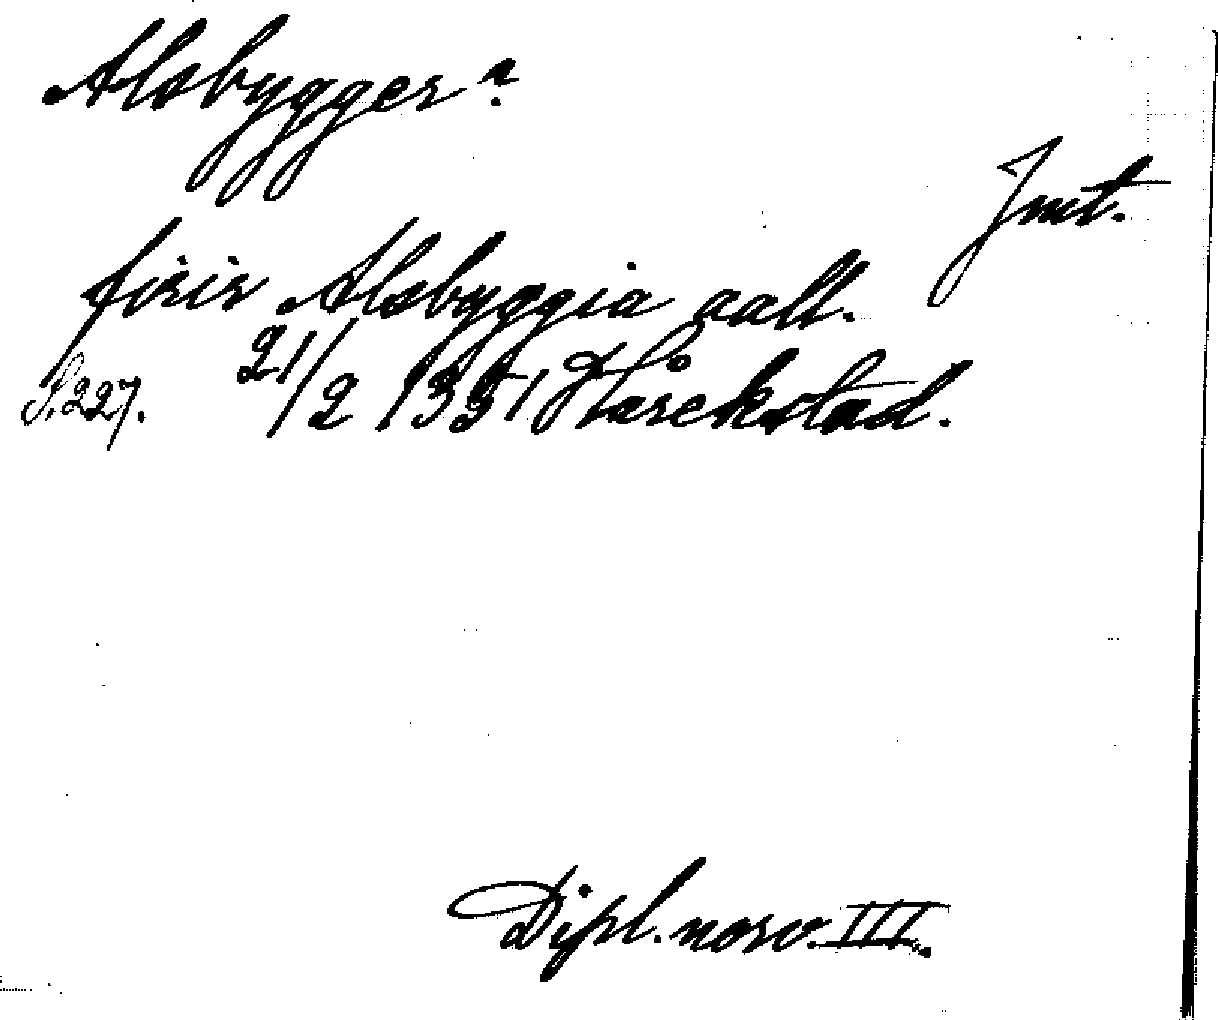 Alsbygger?
Jmt.
firir Alsbyggia aall.
S. 227. 21/2 1351 Hårekstad.
Dipl. norv. III.